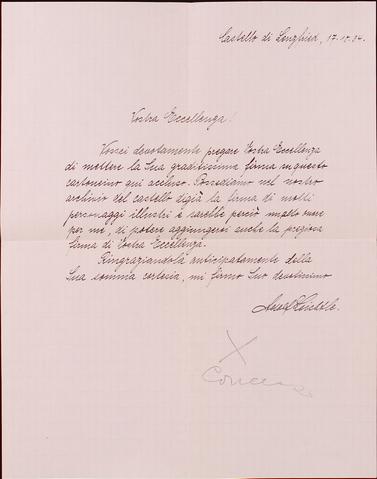 Castello di Lengfried, 17.10.34.
Vostra Eccellenza!
Vorrei devotamente pregare Vostra Eccellenza
di mettere la Sua graditissima firma su questo
cartoncino qui accluso. Possediamo nel nostro
archivio del castello digià la firma di molti
personaggi illustri e sarebbe perciò molto onore
per me, di potere aggiungersi anche la preziosa
firma di Vostra Eccellenza.
Ringraziandola anticipatamente della
Sua somma cortesia, mi firmo Suo devotissimo
Josef
X